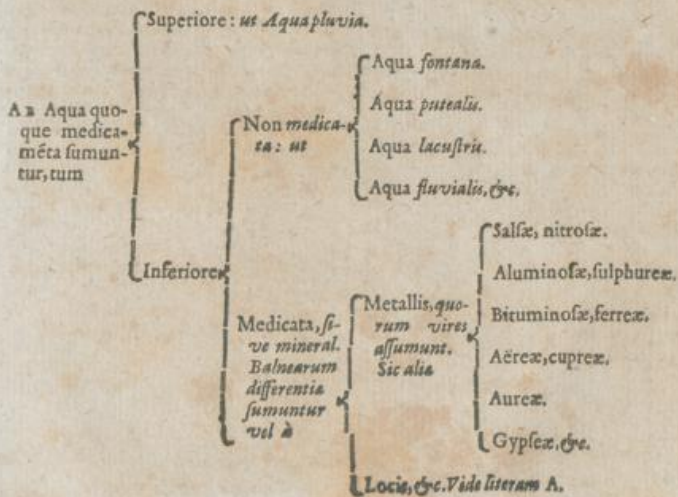 Superiore: ut Aqua pluvia.
AB Aqua quo-
que medica-
mẽta sumun-
tur, tum
Inferiore
Non medica-
ta: ut
Aqua fontana.
Aqua putealis.
Aqua lacuſtris.
Aqua fluvialis, &c.
Medicata, ſi-
ve mineral.
Balnearum
differentia
ſumuntur
vel à
Metallis, quo-
rum vires
aſſumunt.
Sic alia
Salſæ, nitroſæ.
Aluminoſæ, ſulphureæ.
Bituminoſæ, ferreæ.
Aëreæ, cupreæ.
Aureæ.
Gypſeæ, &c.
Locis, &c. Vide literam A.